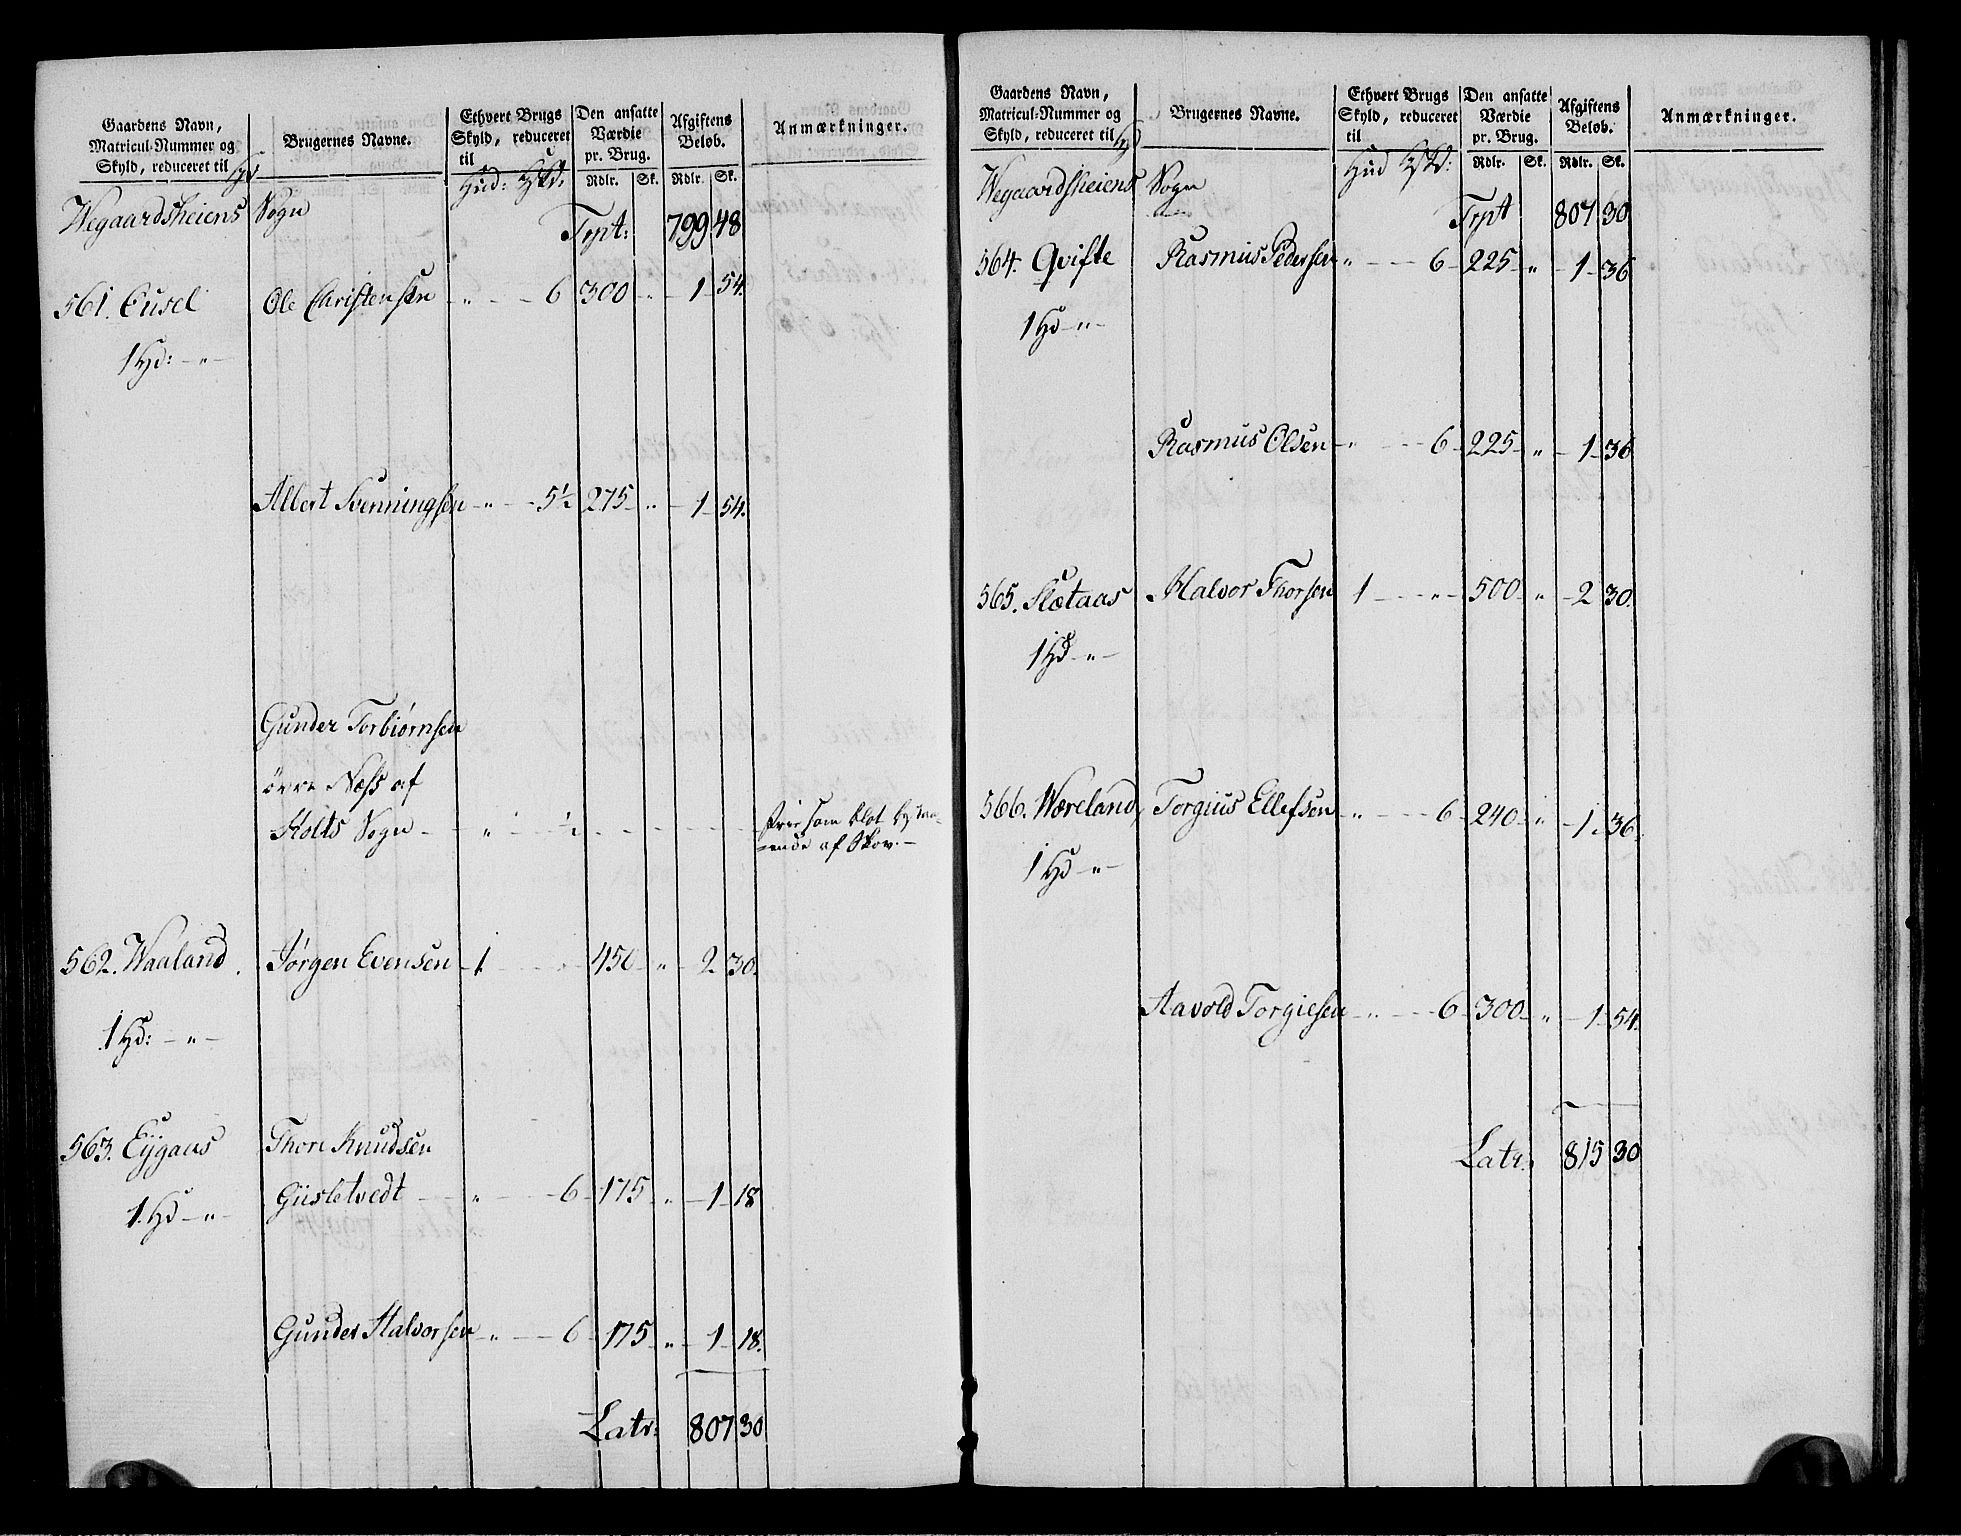 Gaardens Navn, Matricul-Nummer og Skyld, reduceret til | Brugernes Navne. | Ethvert Brugs Skyld, reduceret til | Den ansatte Værdie pr. Brug. | Afgiftens Beløb. | Anmærkninger.
Hud: | Rdlr. | Sk. | Rdlr. | Sk.
Wegaardsheiens Sogn
Trpt: 799 48
561. Eusel Ole Christensen " 6 300 " 1 54.
1 Hd: — " —
Albert Svenningsen " 5½ 275 " 1 54.
Gunder Torbiørnsen
øvre Næss af
Holts Sogn " ½ frie som blot
af Skov.
562. Waaland Jørgen Evensen 1 450 " 2 30.
1 Hd: — " —
563. Eijgaas Thore Knudsen
Giisletvedt " 6 175 " 1 18
1. Hd — " —
Gunder Halvorsen " 6 175 " 1 18.
Latr: 807 30
Gaardens Navn, Matricul-Nummer og Skyld, reduceret til | Brugernes Navne. | Ethvert Brugs Skyld, reduceret til | Den ansatte Værdie pr. Brug. | Afgiftens Beløb. | Anmærkninger.
Hud | Rdlr. | Sk. | Rdlr. | Sk.
Wegaardsheiens Sogn
Trpt 807 30
564. Qvifte Rasmus Pedersen " 6 225 " 1 36
1 Hd — " —
Rasmus Olsen " 6 225 " 1 36
565. Slætaas Halvor Thorsen 1 " 500 " 2 30.
1 Hd — " —
566. Wæreland, Torgius Ellefsen " 6 240 " 1 36.
1 Hd — " —
Aavold Torgiesen " 6 300 " 1 54.
Latr. 815 30